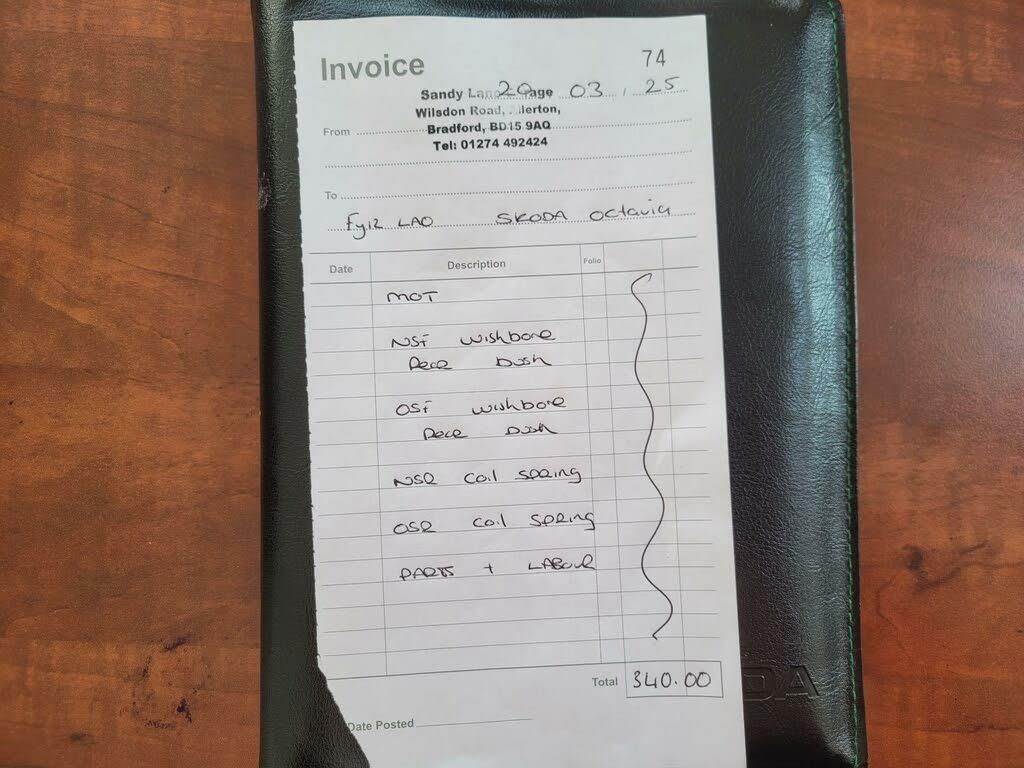 Invoice 74
Sandy Lane Garage 20 03 . 25
Wilsdon Road, Allerton,
From
Bradford, BD15 9AQ
Tel: 01274 492424
To
FY12 LAO SKODA Octavia
Date Description Folio
MOT
NSF wishbone
Rear bush
OSF wishbone
Rear bush
NSR coil spring
OSR coil spring
PARTS + LABOUR
Total 340.00
Date Posted
DA